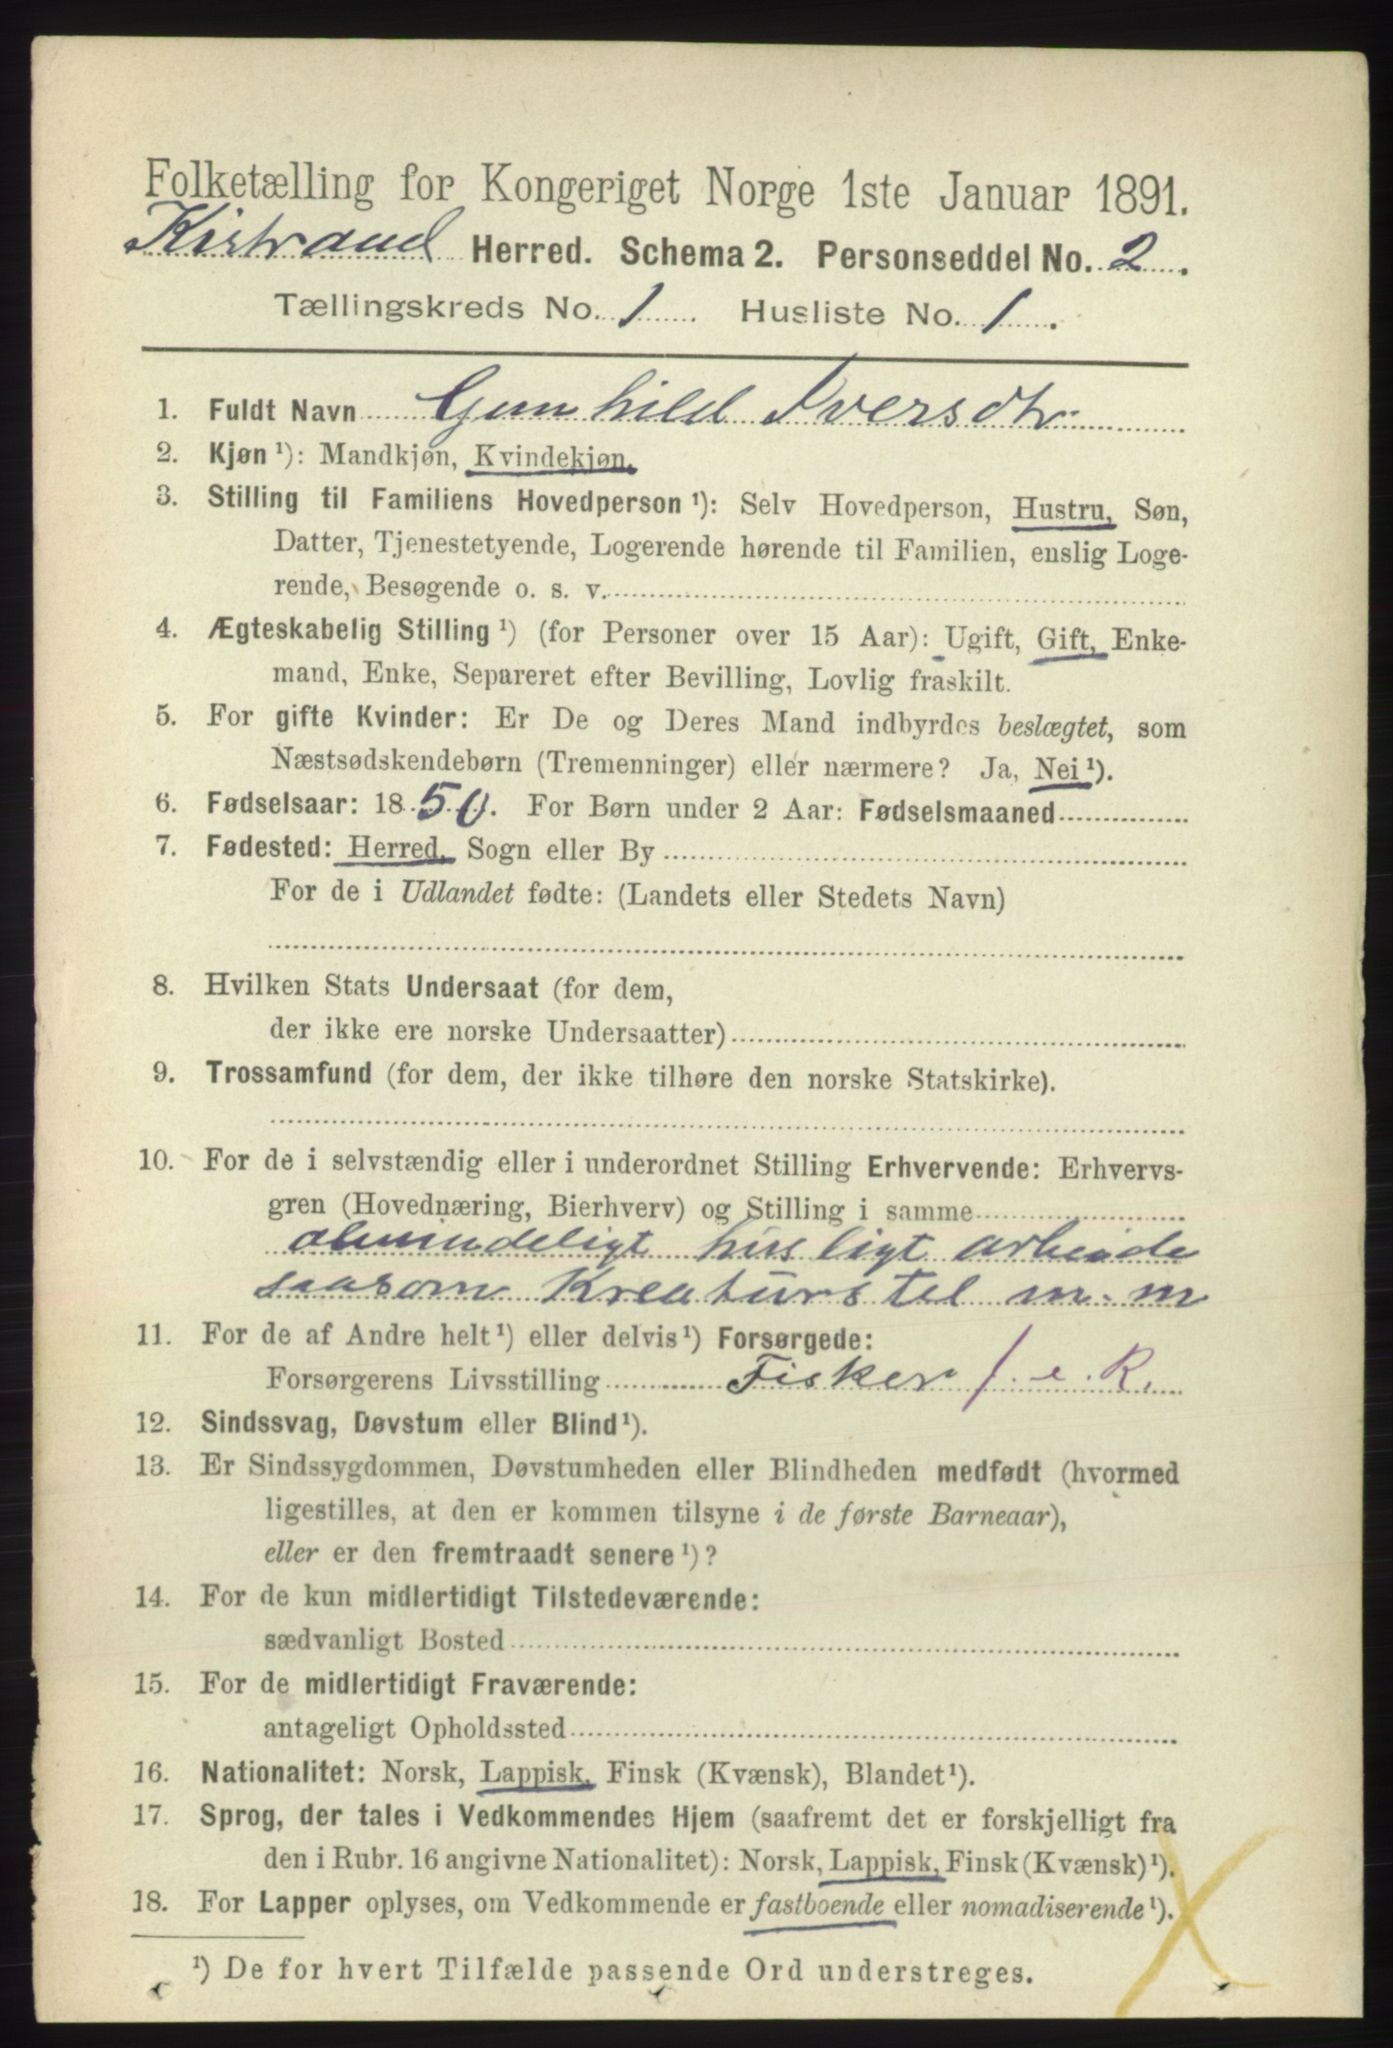 Folketælling for Kongeriget Norge 1ste Januar 1891.
Kistrand Herred. Schema 2. Personseddel No. 2.
Tællingskreds No. 1 Husliste No. 1.
1. Fuldt Navn Gunhild Iversdtr
2. Kjøn ¹): Mandkjøn, Kvindekjøn.
3. Stilling til Familiens Hovedperson ¹): Selv Hovedperson, Hustru, Søn,
Datter, Tjenestetyende, Logerende hørende til Familien, enslig Loge-
rende, Besøgende o. s. v.
4. Ægteskabelig Stilling ¹) (for Personer over 15 Aar): Ugift, Gift, Enke-
mand, Enke, Separeret efter Bevilling, Lovlig fraskilt.
5. For gifte Kvinder: Er De og Deres Mand indbyrdes beslægtet, som
Næstsødskendebørn (Tremenninger) eller nærmere? Ja, Nei ¹).
6. Fødselsaar: 1850. For Børn under 2 Aar: Fødselsmaaned
7. Fødested: Herred, Sogn eller By
For de i Udlandet fødte: (Landets eller Stedets Navn)
8. Hvilken Stats Undersaat (for dem,
der ikke ere norske Undersaatter)
9. Trossamfund (for dem, der ikke tilhøre den norske Statskirke).
10. For de i selvstændig eller i underordnet Stilling Erhvervende: Erhvervs-
gren (Hovednæring, Bierhverv) og Stilling i samme
almindeligt husligt arbeide
saasom Kreaturstel m. m
11. For de af Andre helt ¹) eller delvis ¹) Forsørgede:
Forsørgerens Livsstilling Fisker f. e. R.
12. Sindssvag, Døvstum eller Blind ¹).
13. Er Sindssygdommen, Døvstumheden eller Blindheden medfødt (hvormed
ligestilles, at den er kommen tilsyne i de første Barneaar),
eller er den fremtraadt senere ¹)?
14. For de kun midlertidigt Tilstedeværende:
sædvanligt Bosted
15. For de midlertidigt Fraværende:
antageligt Opholdssted
16. Nationalitet: Norsk, Lappisk, Finsk (Kvænsk), Blandet ¹).
17. Sprog, der tales i Vedkommendes Hjem (saafremt det er forskjelligt fra
den i Rubr. 16 angivne Nationalitet): Norsk, Lappisk, Finsk (Kvænsk) ¹).
18. For Lapper oplyses, om Vedkommende er fastboende eller nomadiserende ¹).
¹) De for hvert Tilfælde passende Ord understreges.